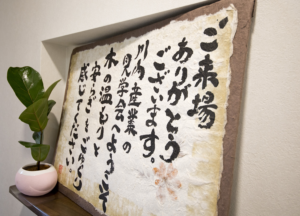 ご来場
ありがとう
ございます。
川島産業の
見学会へようこそ
木の温もりと
安らぎをごゆっくり
感じてください。